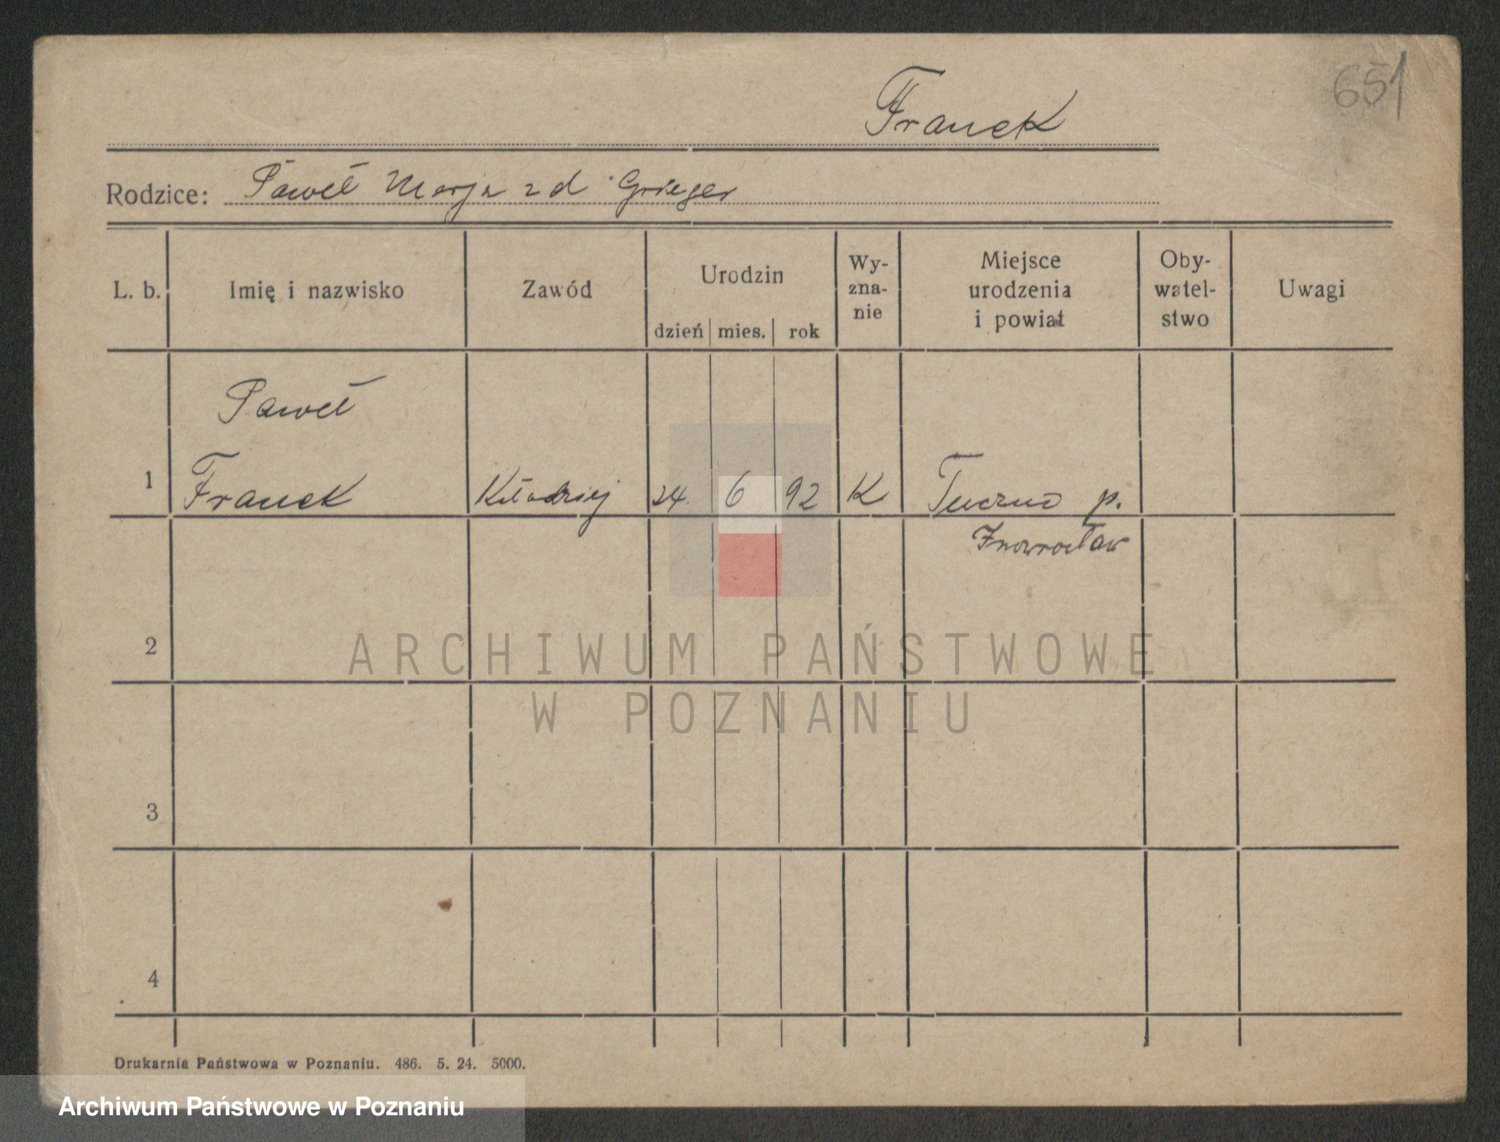 651
Franek
Rodzice: Paweł Marja zd Grieger
L. b. Imię i nazwisko Zawód Urodzin dzień mies. rok Wy-zna-nie Miejsce urodzenia i powiat Oby-watel-stwo Uwagi
Paweł
1 Franek Kołodziej 24. 6 92 K Tuczno p.
Inowrocław
2
ARCHIWUM PAŃSTWOWE
W POZNANIU
3
4
Drukarnia Państwowa w Poznaniu. 486. 5. 24. 5000.
Archiwum Państwowe w Poznaniu